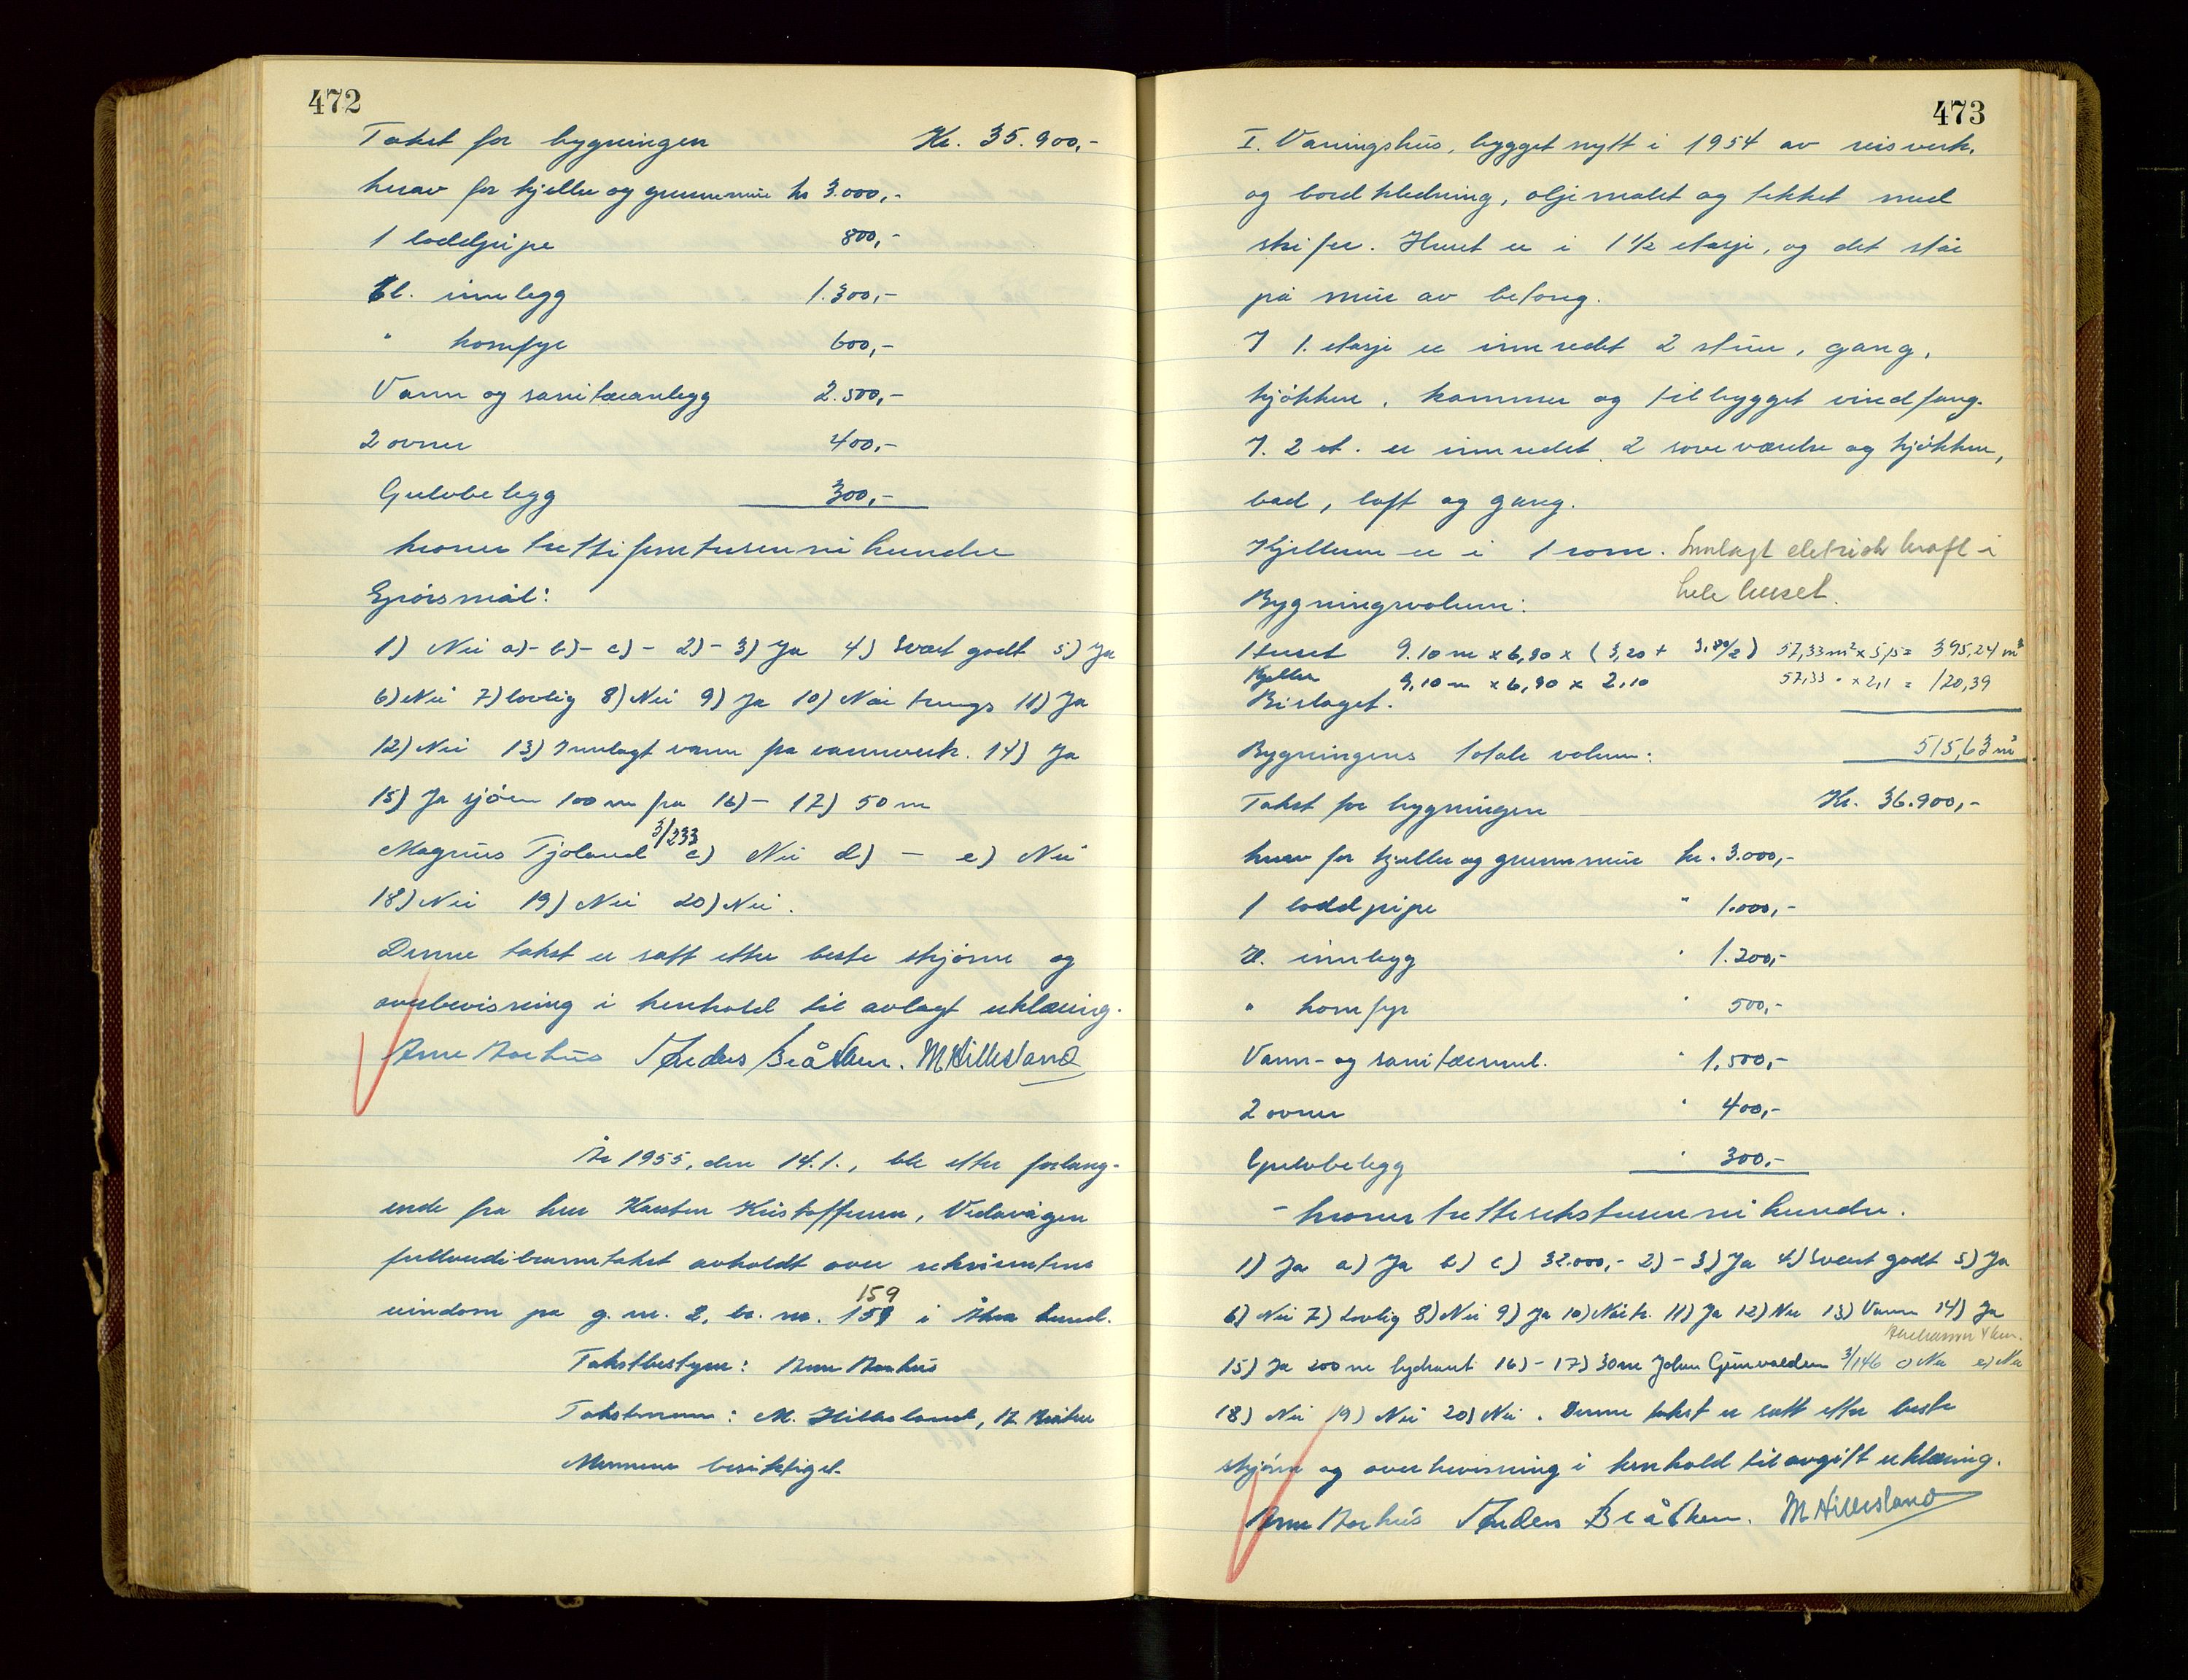 472
Takst for bygningen Kr. 35.900,-
herav for kjeller og grunnmur kr 3.000,-
1 loddpipe 800,-
El. innlegg 1.300,-
" komfyr 600,-
Vann og sanitæranlegg 2.500,-
2 ovner 400,-
Gulvbelegg 300,-
kroner trettifemtusennihundre
Spørsmål:
1) Nei a)- b)- c)- 2)- 3) Ja 4) Svært godt 5) Ja
6) Nei 7) lovlig 8) Nei 9) Ja 10) Når trengs 11) Ja
12) Nei 13) Innlagt vann fra vannverk. 14) Ja
15) Ja sjøen 100 m fra 16)- 17) 50 m
3/233
Magnus Tjøland c) Nei d) - e) Nei
18) Nei 19) Nei 20) Nei.
Denne takst er satt etter beste skjønn og
overbevisning i henhold til avlagt erklæring.
Arne Aarhus Anders Bråthen. M Hillesland
År 1955, den 14.1., ble etter forlang-
ende fra herr Karsten Kristoffersen, Vedavågen
fullverdibranntakst avholdt over rekvirentens
159
eiendom på g. nr. 2, br. nr. 159 i Åkra herred.
Takstbestyrer: Arne Aarhus
Takstmenn: M. Hillesland, A. Bråthen
Mennene besiktiget.
473
I. Våningshus, bygget nytt i 1954 av reisverk,
og bordkledning, oljemalet og tekket med
skifer. Huset er i 1 1/2 etasje, og det står
på mur av betong.
I 1. etasje er innredet 2 stuer, gang,
kjøkken, kammer og tilbygget vindfang.
I. 2 et. er innredet 2 soveværelse og kjøkken,
bad, loft og gang.
Kjelleren er i 1 rom. Innlagt eletrisk kraft i
hele huset.
Bygningsvolum:
Huset 9.10 m x 6,30 x (3,20 + 3,80/2) 57,33 m² x 5,15 = 395,24 m³
Kjeller 9,10 m x 6,30 x 2,10 57,33 " x 2,1 = 120,39
Bislaget.
Bygningens totale volum: 515,63 m³
Takst for bygningen Kr. 36.900,-
herav for kjeller og grunnmur kr. 3.000,-
1 loddpipe " 1.000,-
El. innlegg " 1.200,-
" komfyr " 500,-
Vann- og sanitæranl. " 1,500,-
2 ovner " 400,-
Gulvbelegg " 300,-
- kroner trettisekstusennihundre.
1) Ja a) Ja b) c) 32.000,- 2)- 3) Ja 4) Svært godt 5) Ja
6) Nei 7) Lovlig 8) Nei 9) Ja 10) Når tr. 11) Ja 12) Nei 13) Vann 14) Ja
15) Ja 200 m hydrant 16)- 17) 30 m Johan Gunvaldsen 3/146 c) Nei e) Nei
18) Nei 19) Nei 20) Nei. Denne takst er satt etter beste
skjønn og overbevisning i henhold til avgitt erklæring.
Arne Aarhus Anders Bråthen. M Hillesland